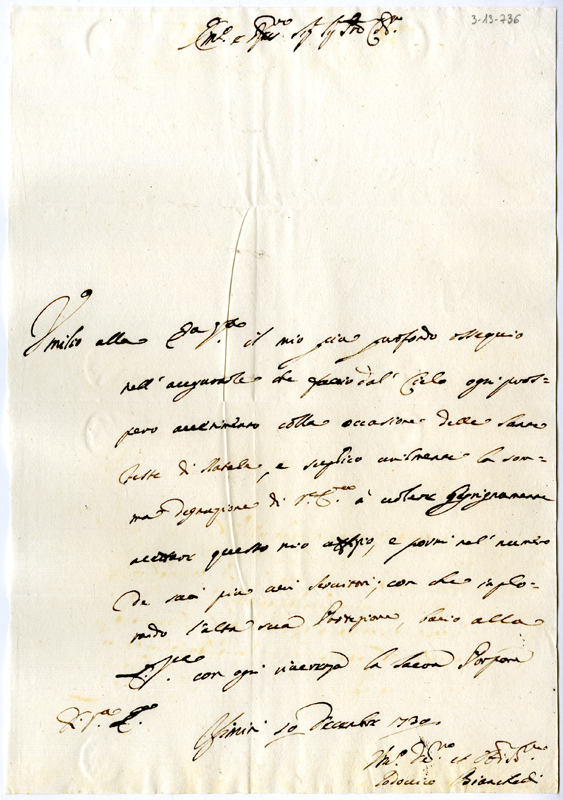 3-13-736
Em.o e Rev.mo Sig. Sig. Pro. Col.mo
Umilio alla E.a V.ra il mio più profondo ossequio
nell' augurarle che faccio dal Cielo ogni pros=
pero avvenimento colla occasione delle Sante
Feste di Natale, e suplico umilmente la som=
ma degnazione di V.E. à volere benignamente
accettare questo mio, e pormi nel numero
de suoi più veri servitori; con che implo=
rando l'alta sua Protezione, bacio alla
con ogni riverenza la Sacra Porpora
Di V.ra E.
Rimini 19 Decembre 1730
Um.o et Obl.mo
Lodovico Bianchelli